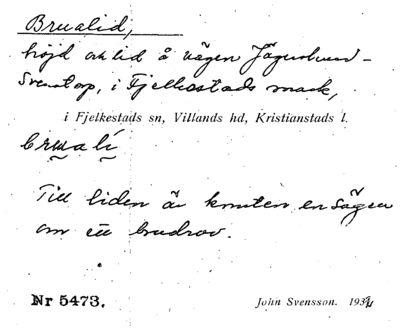 Brualid,
höjd och lid å vägen Jägarlund-
Svenstorp, i Fjelkestads mark,
i Fjelkestads sn, Villands hd, Kristianstads l.
bruali
Till liden är knuten en sägen
om ett brudrov.
Nr 5473. John Svensson. 1934